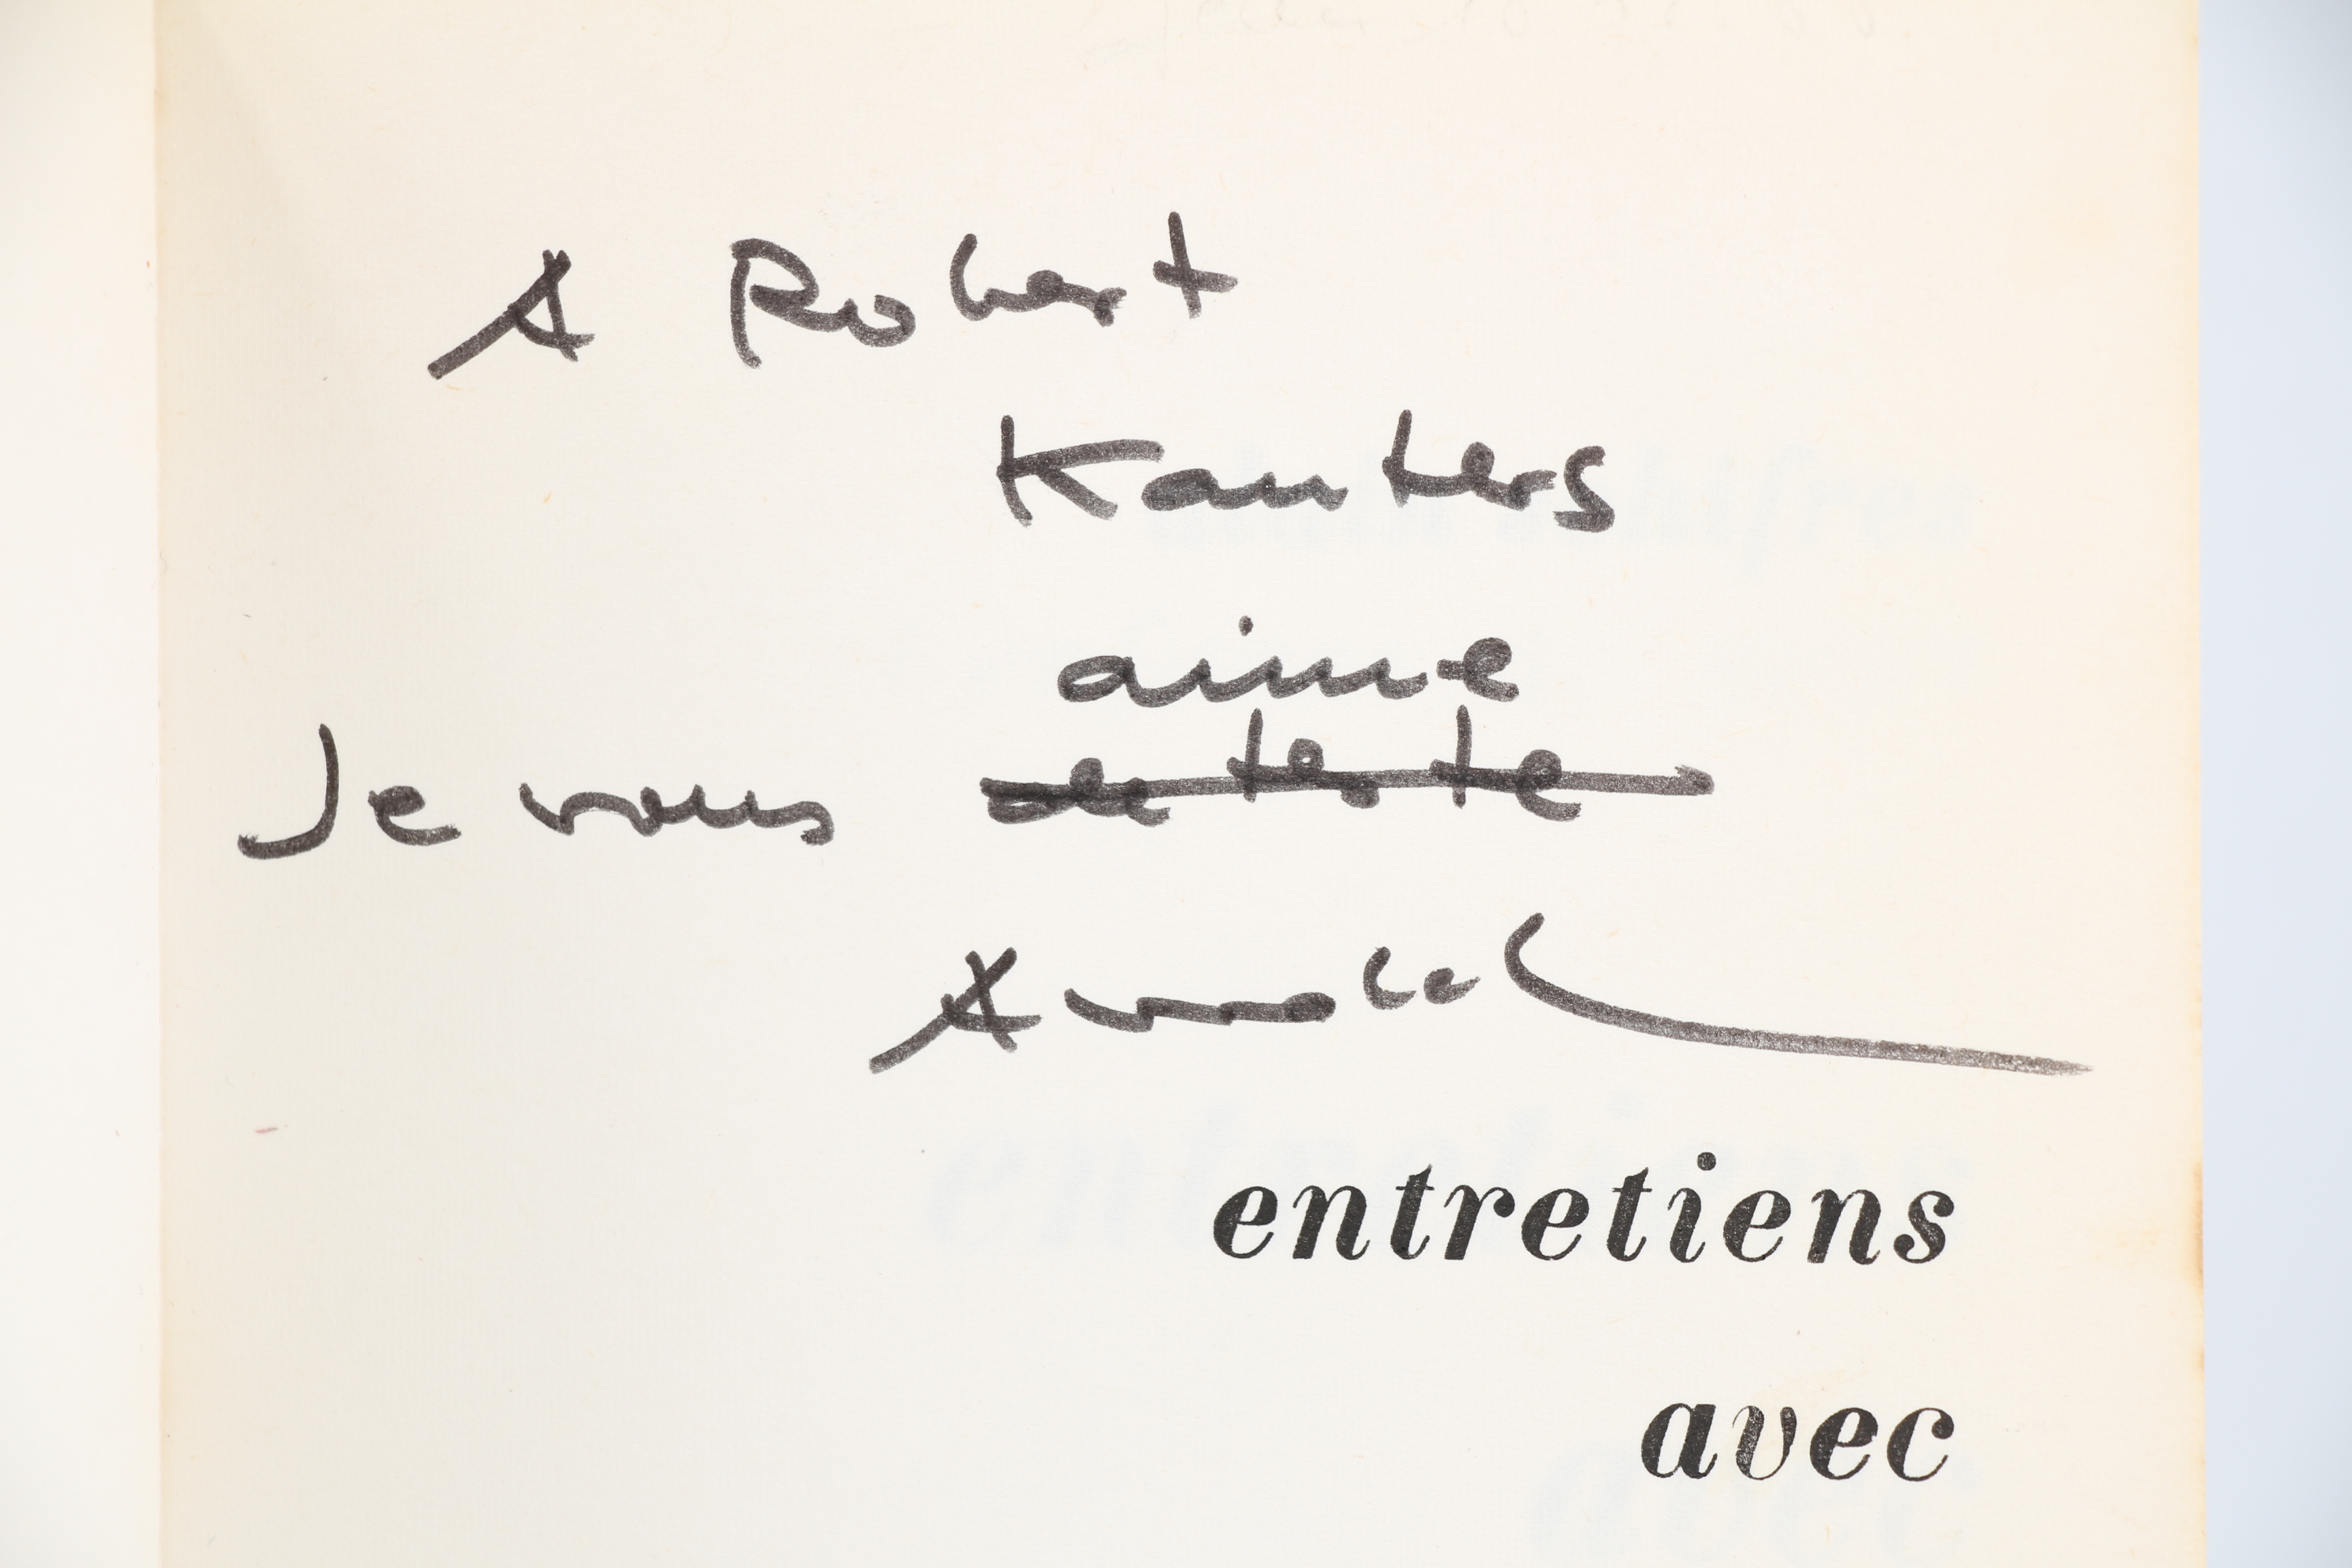 A Robert
Kanters
aime
Je vous déteste
Arrabal
entretiens
avec